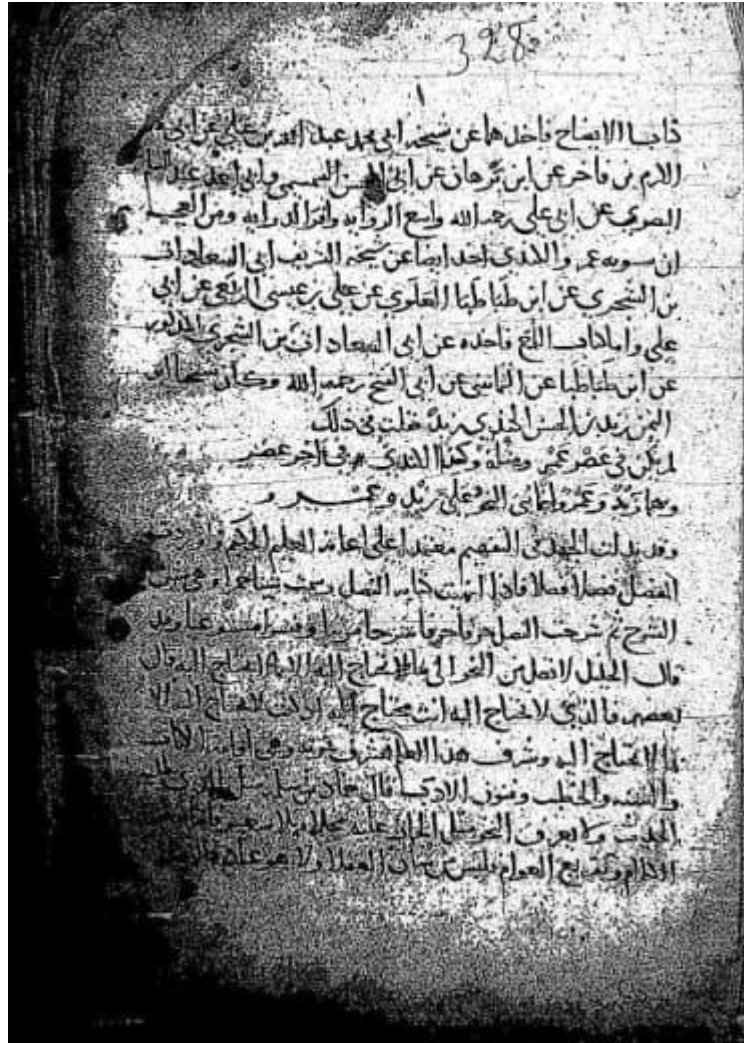 328
١
فاخذهما عن شيخه ابي محمد عبد الله بن علي عن ابي
الكرم بن فاخر عن ابن برهان عن ابي السمسمي وابي احمد عبد السلم
البصري عن ابي علي رحمه الله واسع الروايه وافر الدرايه ومن العجب
ان سيبويه والكندي اخذ ايضا عن شيخه الشريف ابي السعادات
بن الشجري عن ابن طباطبا العلوي عن علي بن عيسى الربعي عن ابي
علي واما كتاب اللمع فاخذه عن ابي السعادات بن الشجري المذكور
عن ابن طباطبا عن الثمانيني عن ابي الفتح رحمه الله وكان شيخنا ابو
اليمن زيد بن الحسن الكندي فقلت في ذلك
لم يكن في عصر عمرو مثله وكذا الكندي في اخر عصر
وهما زيد وعمرو انما بني النحو على زيد وعمرو
وقد بذلت الجهد في التفهيم معتمدا على اعانة العليم الحكيم واوردت
المفصل فصلا فصلا فاذا انتهت كتابة الفصل رسمت شينا حمراء وهي شين
الشرح ثم شرحت الفصل حرفا حرفا شرحا
قال الخليل لا نصل من النحو الى ما نحتاج اليه الا بما لا نحتاج اليه قال
بعضهم فالذي لا نحتاج اليه انت محتاج اليه اذ كنت لا تحتاج اليه الا
بما لا تحتاج اليه وشرف هذا العلم بشرف ثمرته وهي اقامة الكتاب
والسنة والخطب وفنون الادب قال حماد بن سلمة مثل الذي يطلب
الحديث ولا يعرف النحو مثل الحمار عليه مخلاة بلا شعير
العوام فليس من العقلا ولا